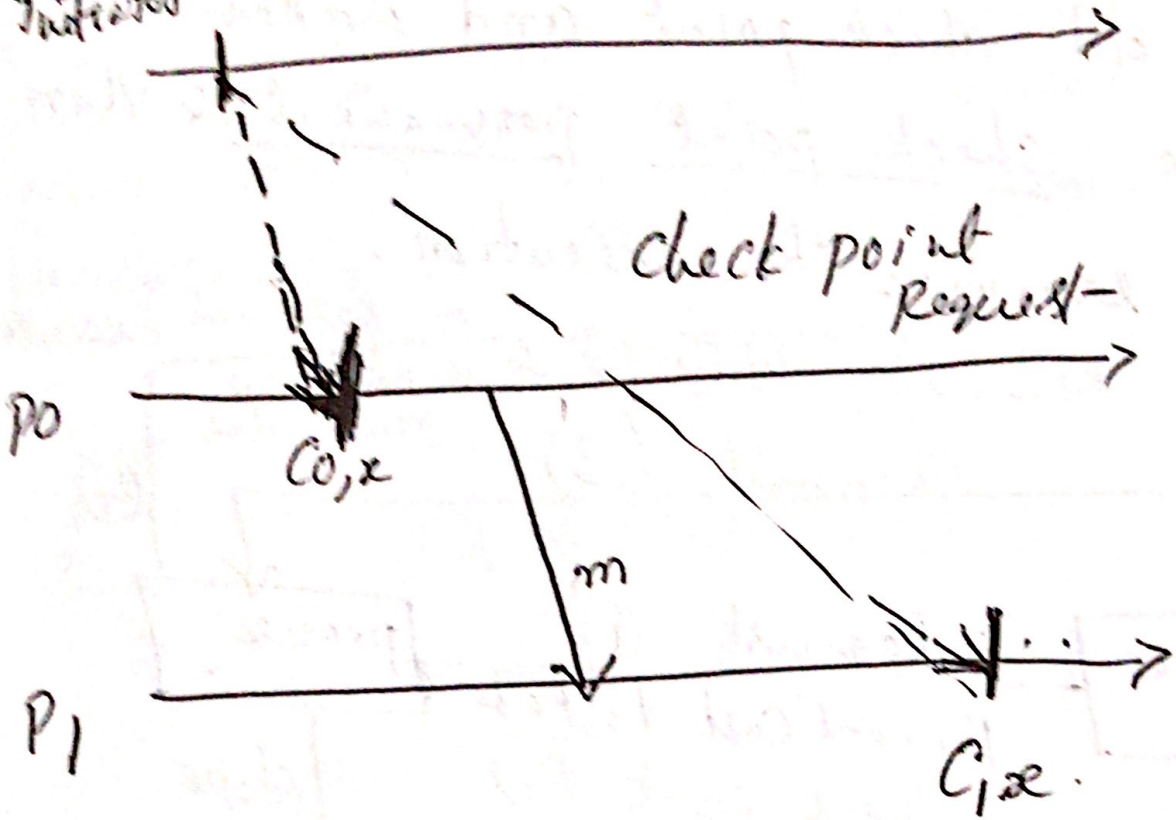 Initiator
Check point
Request
P0
C0,x
m
P1
C1,x.